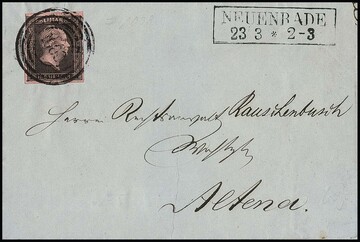 NEUENRADE
23 3 * 2-3
Herrn Rechtsanwalt Rauschenbusch
Altena.